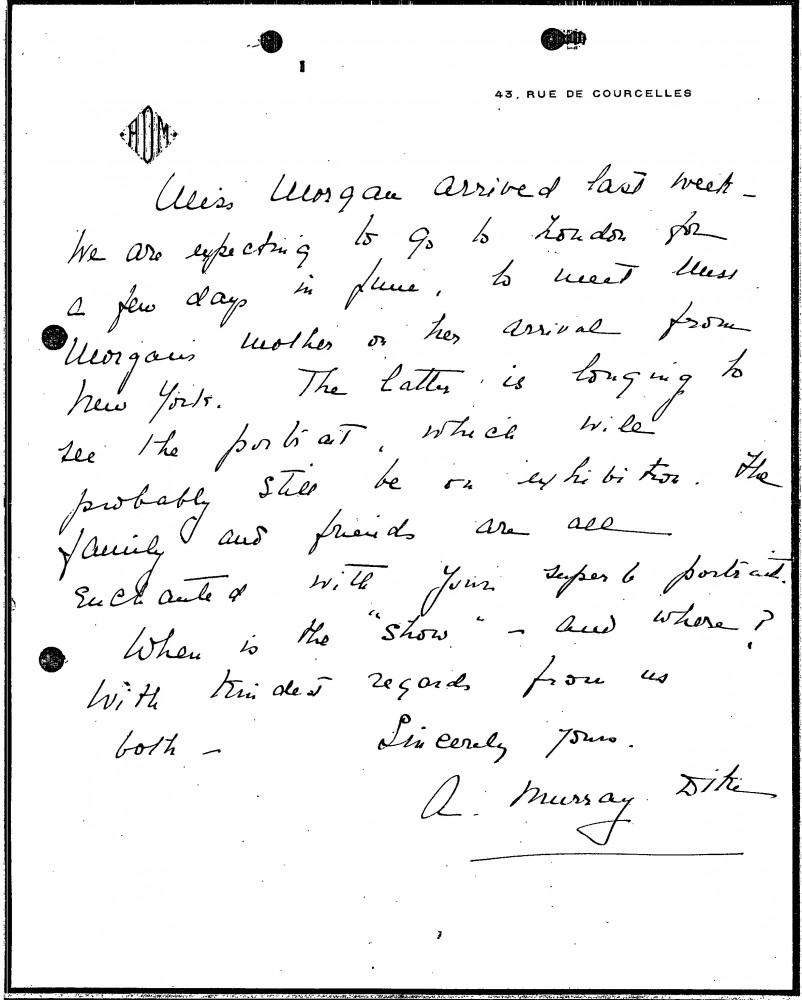 1
43, RUE DE COURCELLES
Miss Morgan arrived last week –
We are expecting to go to London for
a few days in June, to meet Miss
Morgan's mother on her arrival from
New York. The latter is longing to
see the portrait, which will
probably still be on exhibition. The
family and friends are all
enchanted with your superb portrait.
When is the "show" – and where?
With kindest regards from us
both – Sincerely yours.
A. Murray Dike